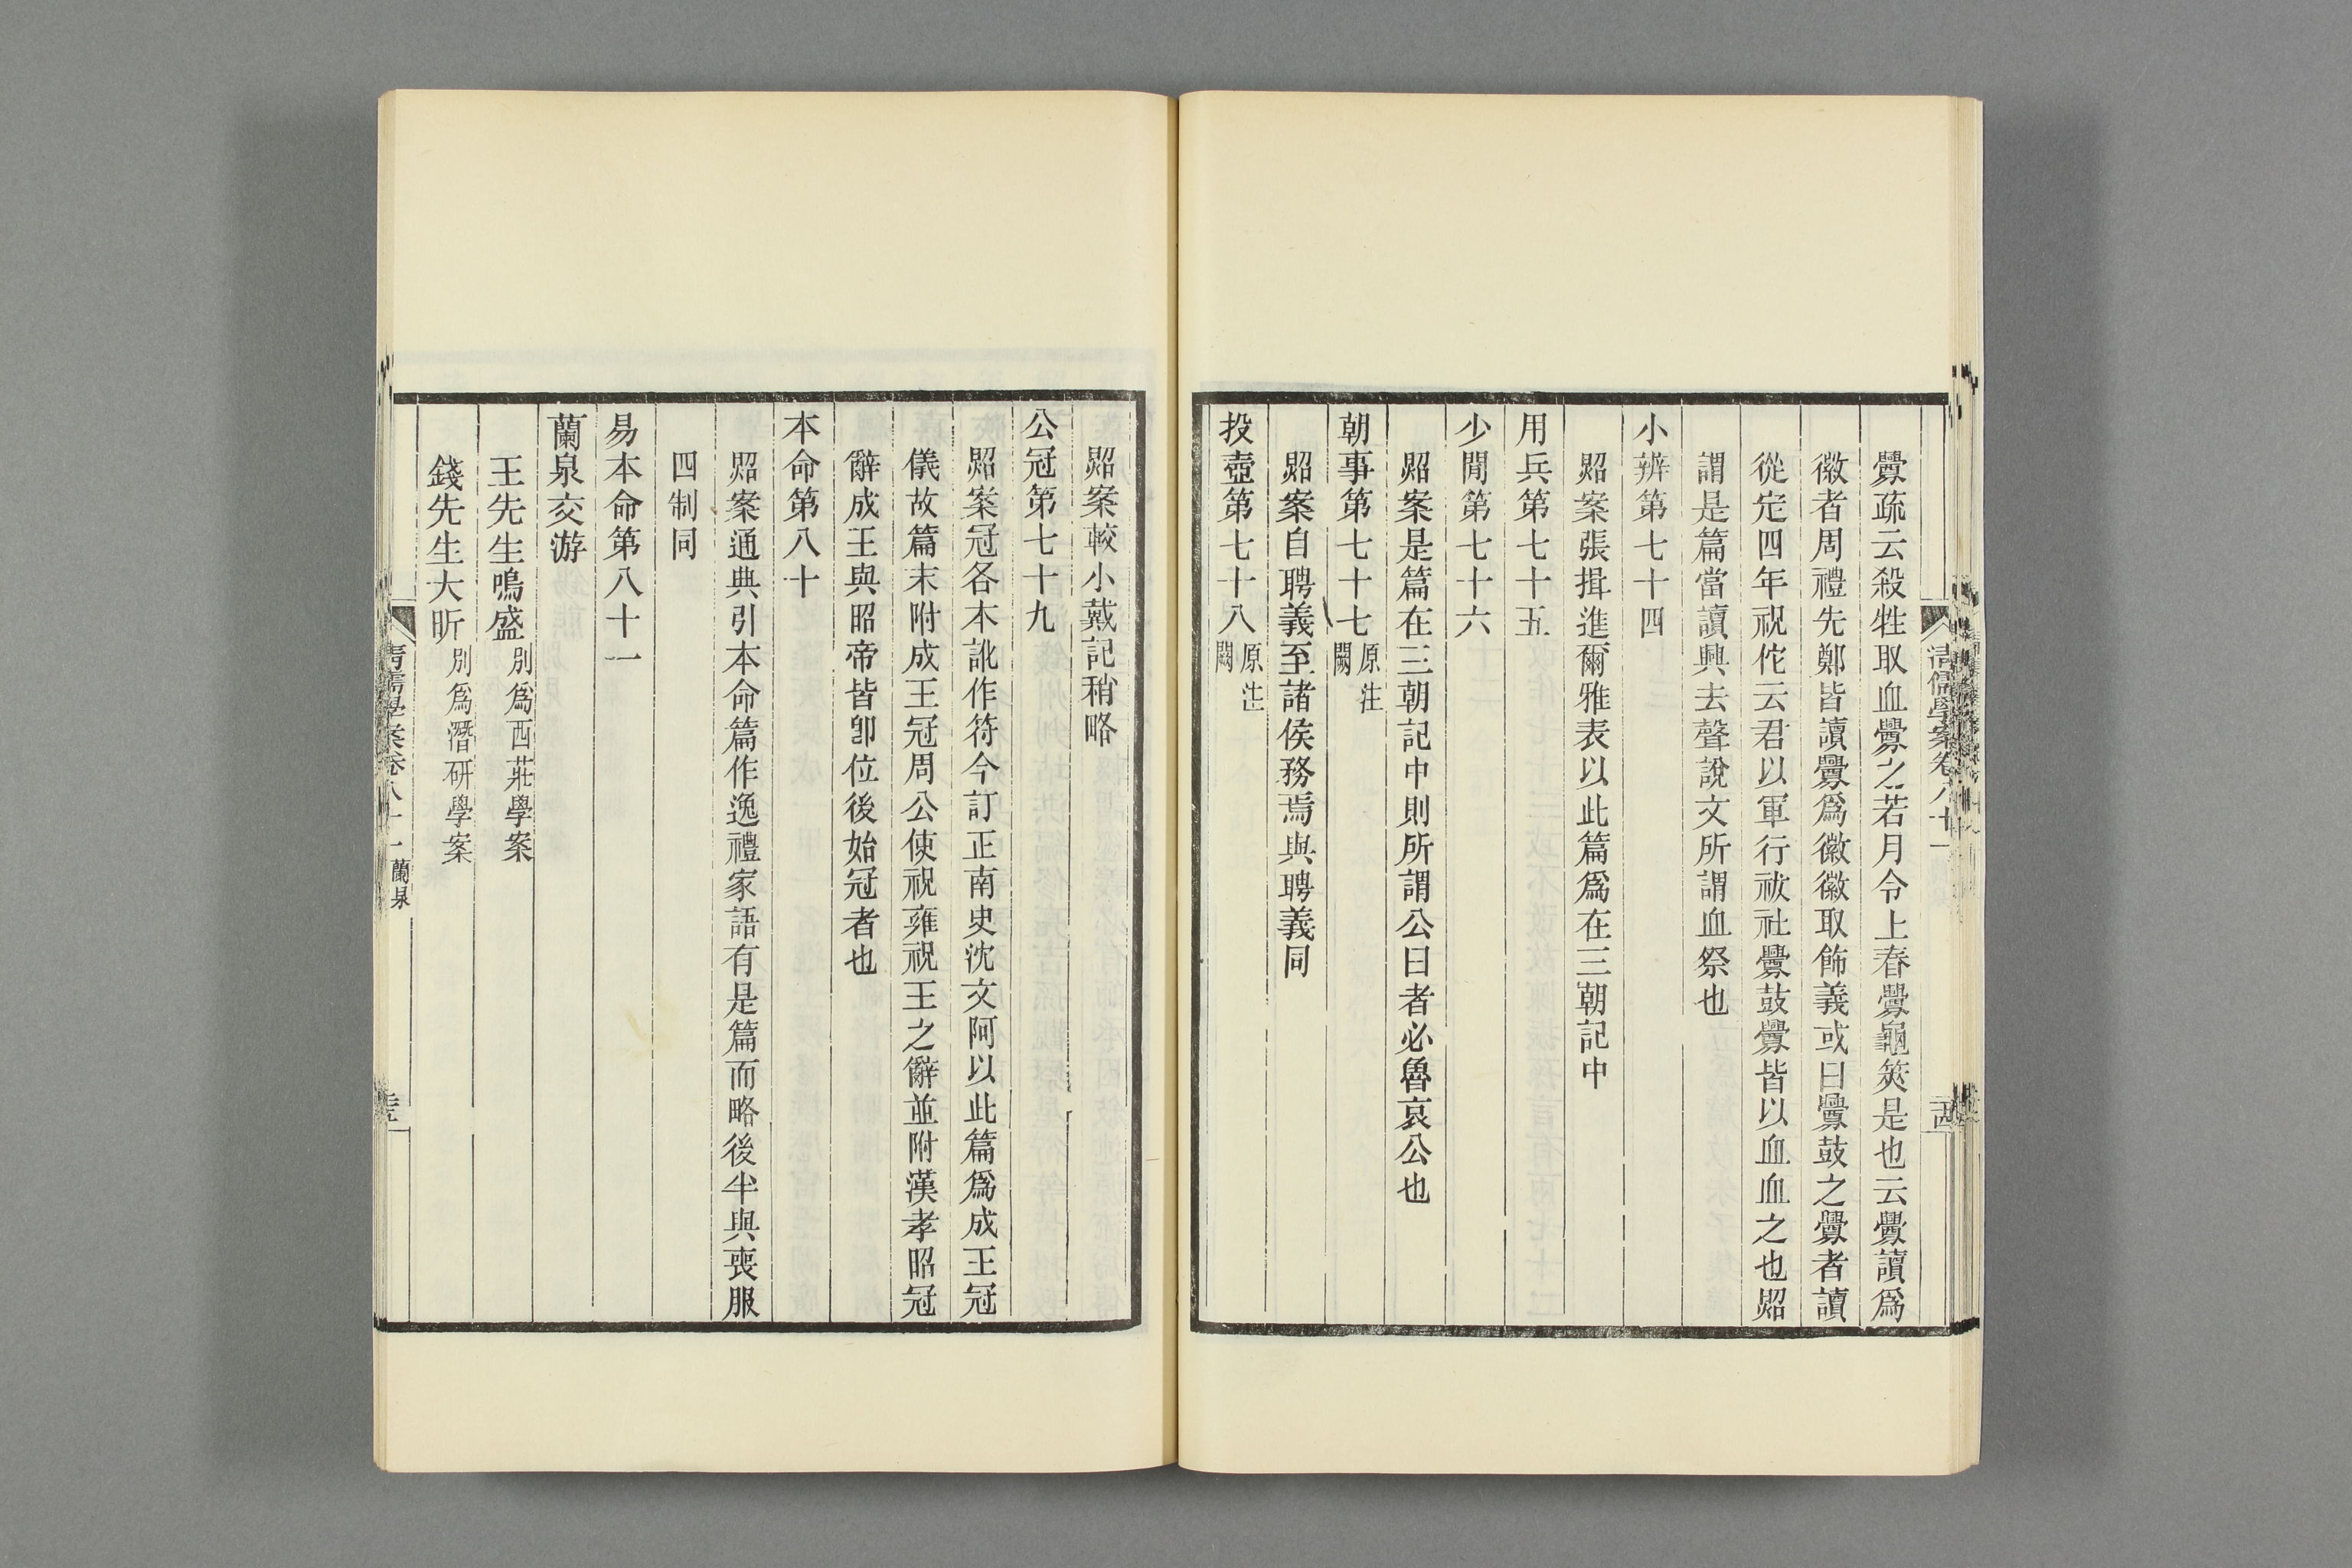 清儒學案卷八十一
釁疏云殺牲取血釁之若月令上春釁龜筴是也云釁讀爲
徽者周禮先鄭皆讀釁爲徽徽取飾義或曰釁鼓之釁者讀
從定四年祝佗云君以軍行祓社釁鼓釁皆以血血之也炤
謂是篇當讀興去聲說文所謂血祭也
小辨第七十四
炤案張揖進爾雅表以此篇爲在三朝記中
用兵第七十五
少閒第七十六
炤案是篇在三朝記中則所謂公曰者必魯哀公也
朝事第七十七原注闕
炤案自聘義至諸侯務焉與聘義同
投壺第七十八原注闕
炤案較小戴記稍略
公冠第七十九
炤案冠各本訛作符今訂正南史沈文阿以此篇爲成王冠
儀故篇末附成王冠周公使祝雍祝王之辭並附漢孝昭冠
辭成王與昭帝皆卽位後始冠者也
本命第八十
炤案通典引本命篇作逸禮家語有是篇而略後半與喪服
四制同
易本命第八十一
蘭泉交游
王先生鳴盛別爲西莊學案
錢先生大昕別爲潛研學案
清儒學案卷八十一 蘭泉